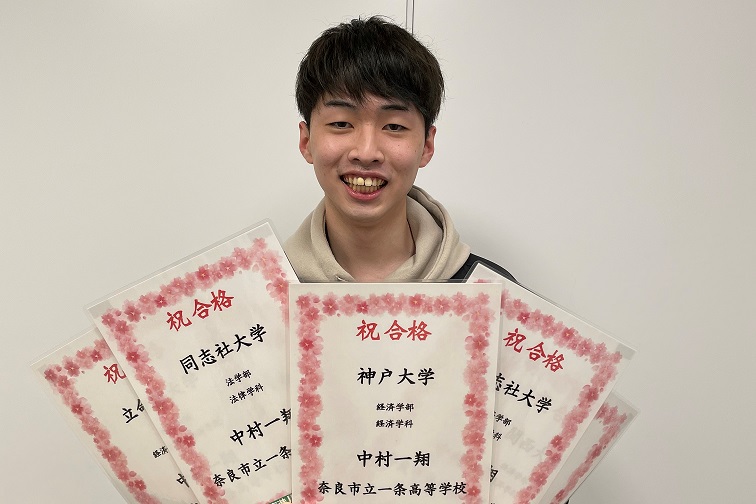 祝
立
経
中村
祝合格
同志社大学
法学部
法律学科
中村一翔
奈良市立一条
祝合格
神戸大学
経済学部
経済学科
中村一翔
奈良市立一条高等学校
祝合格
志社大学
学部
学科
一翔
高等学校